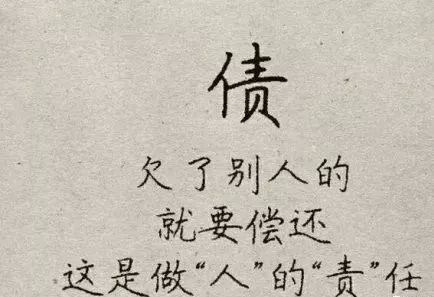 债
欠了别人的
就要偿还
这是做“人”的“责”任